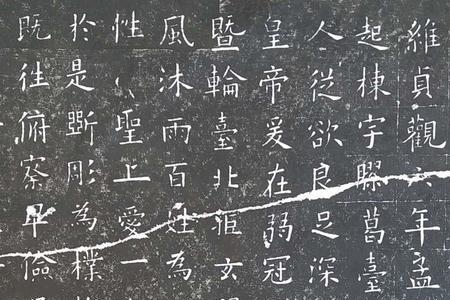 維貞觀六年孟
起棟宇膠葛臺
人從欲良足深
皇帝爰在弱冠
暨輪臺北拒玄
風沐雨百姓為
性〻聖上愛一
於是斲彫為樸
既往俯察卑儉